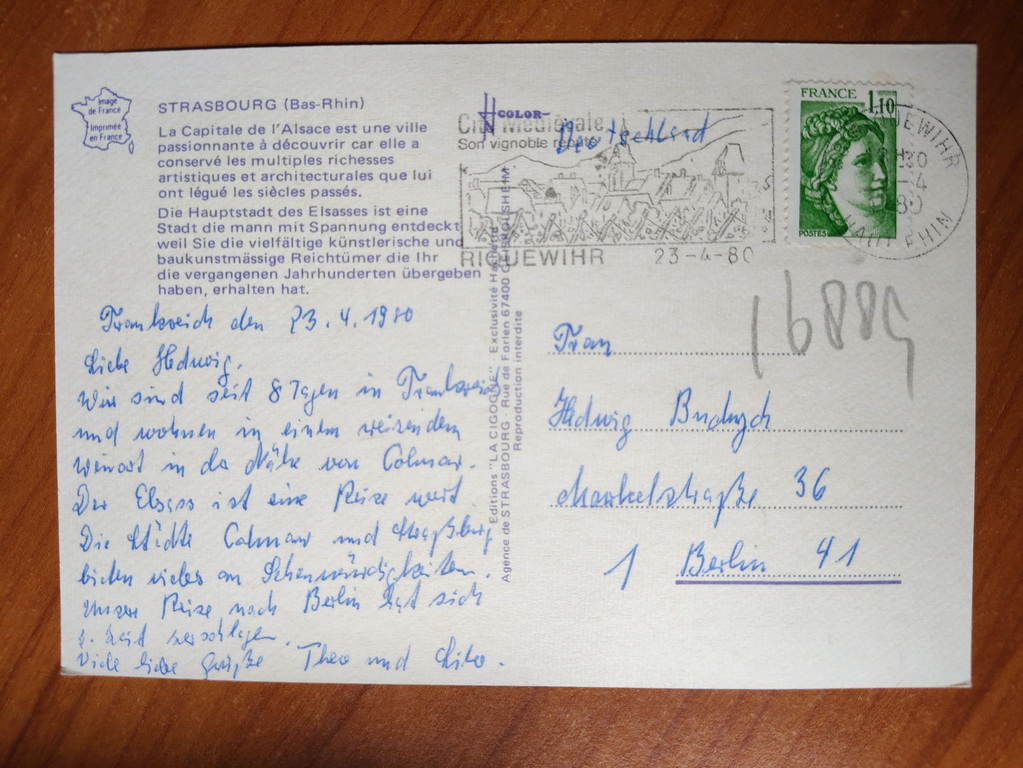 Image
de France
Imprimée
en France
STRASBOURG (Bas-Rhin)
La Capitale de l'Alsace est une ville
passionnante à découvrir car elle a
conservé les multiples richesses
artistiques et architecturales que lui
ont légué les siècles passés.
Die Hauptstadt des Elsasses ist eine
Stadt die mann mit Spannung entdeckt
weil Sie die vielfältige künstlerische und
baukunstmässige Reichtümer die Ihr
die vergangenen Jahrhunderten übergeben
haben, erhalten hat.
Frankreich den 23.4.1980
Liebe Hedwig.
Wir sind seit 8 Tagen in Frankreich
und wohnen in einem reizenden
Weinort in da Nähe von Colmar.
Der Elsass ist eine Reise wert.
Die Städte Colmar und Straßburg
bieten vieles an Sehenwürdigkeiten.
Unsere Reise nach Berlin hat sich
z. Zeit zerschlagen.
Viele liebe Grüße Theo und Lilo.
Editions "LA CIGOGNE" - Exclusivité Hachette
Agence de STRASBOURG - Rue de Forlen 67400 GEISPOLSHEIM
Reproduction interdite
COLOR
Cité Médiévale
Son vignoble réputé
Deutschland
RIQUEWIHR 23-4-80
FRANCE 1,10
POSTES
RIQUEWIHR
HAUT-RHIN
16889
Frau
Hedwig
Markelstraße 36
1 Berlin 41